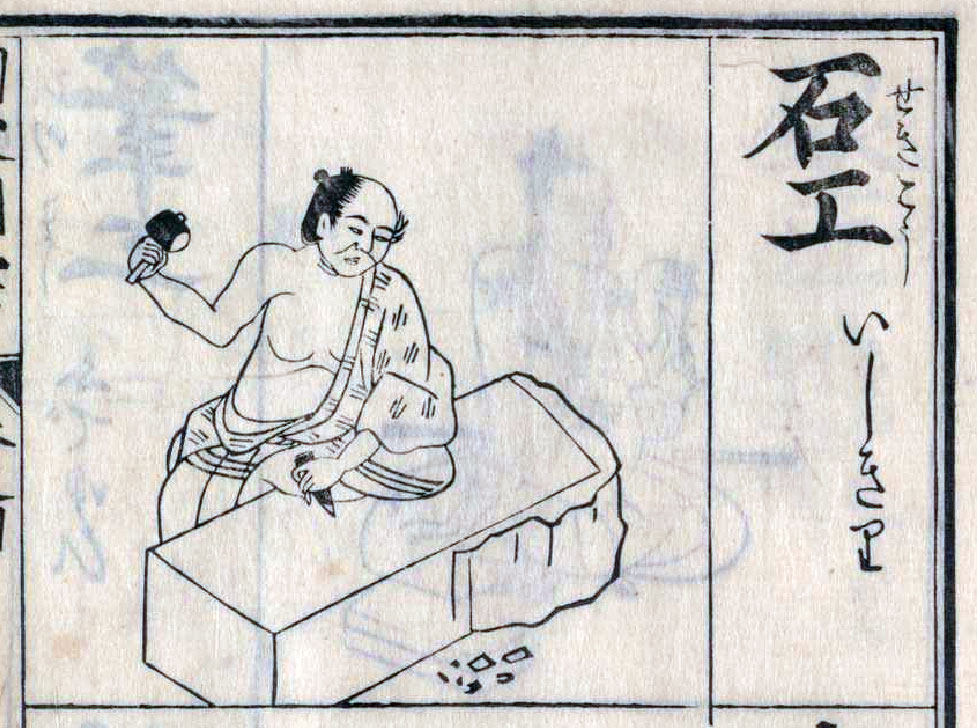 石工
せきこう
いしきり